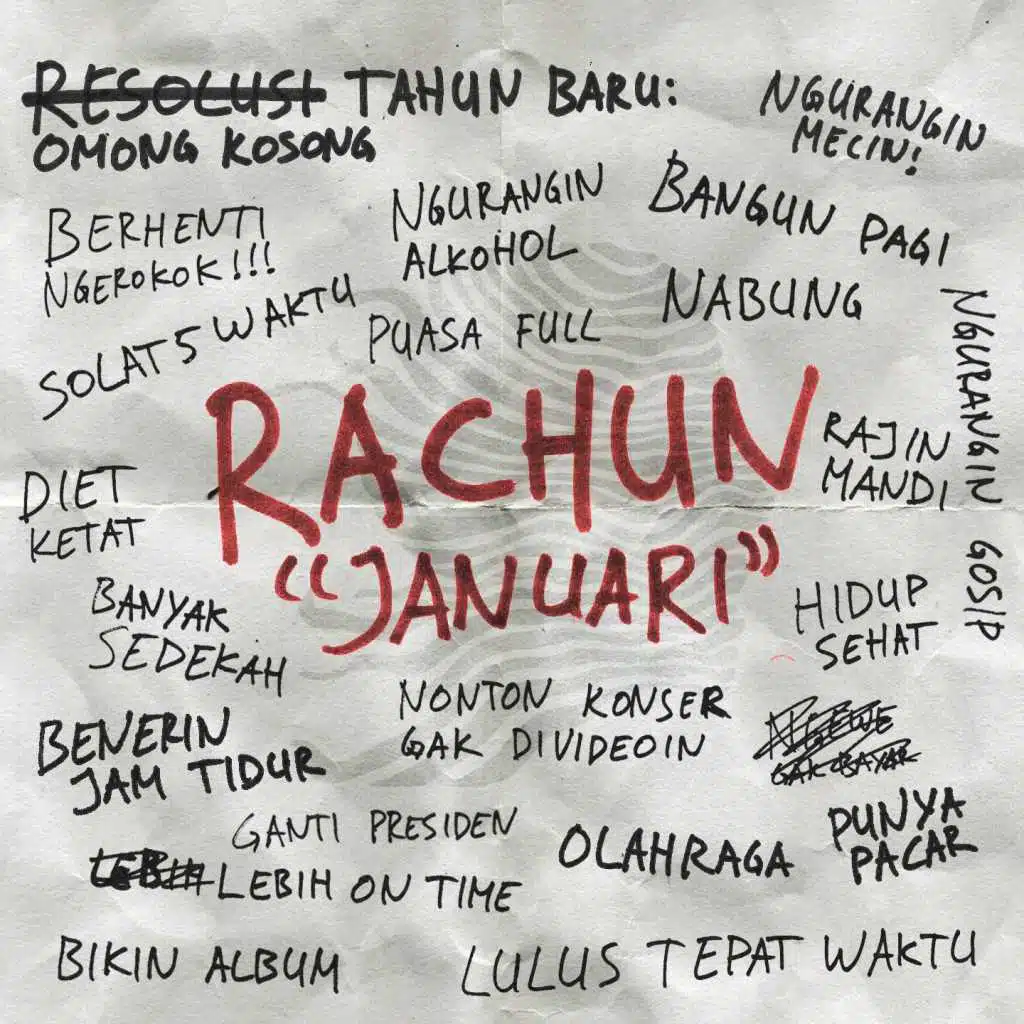 RESOLUSI TAHUN BARU:
OMONG KOSONG
NGURANGIN
MECIN!
BERHENTI
NGEROKOK!!!
NGURANGIN
ALKOHOL
BANGUN PAGI
SOLAT 5 WAKTU
PUASA FULL
NABUNG
NGURANGIN GOSIP
RACHUN
"JANUARI"
RAJIN
MANDI
DIET
KETAT
BANYAK
SEDEKAH
HIDUP
SEHAT
BENERIN
JAM TIDUR
NONTON KONSER
GAK DIVIDEOIN
GAK BAYAR
GANTI PRESIDEN
LEBIH LEBIH ON TIME
OLAHRAGA
PUNYA
PACAR
BIKIN ALBUM
LULUS TEPAT WAKTU